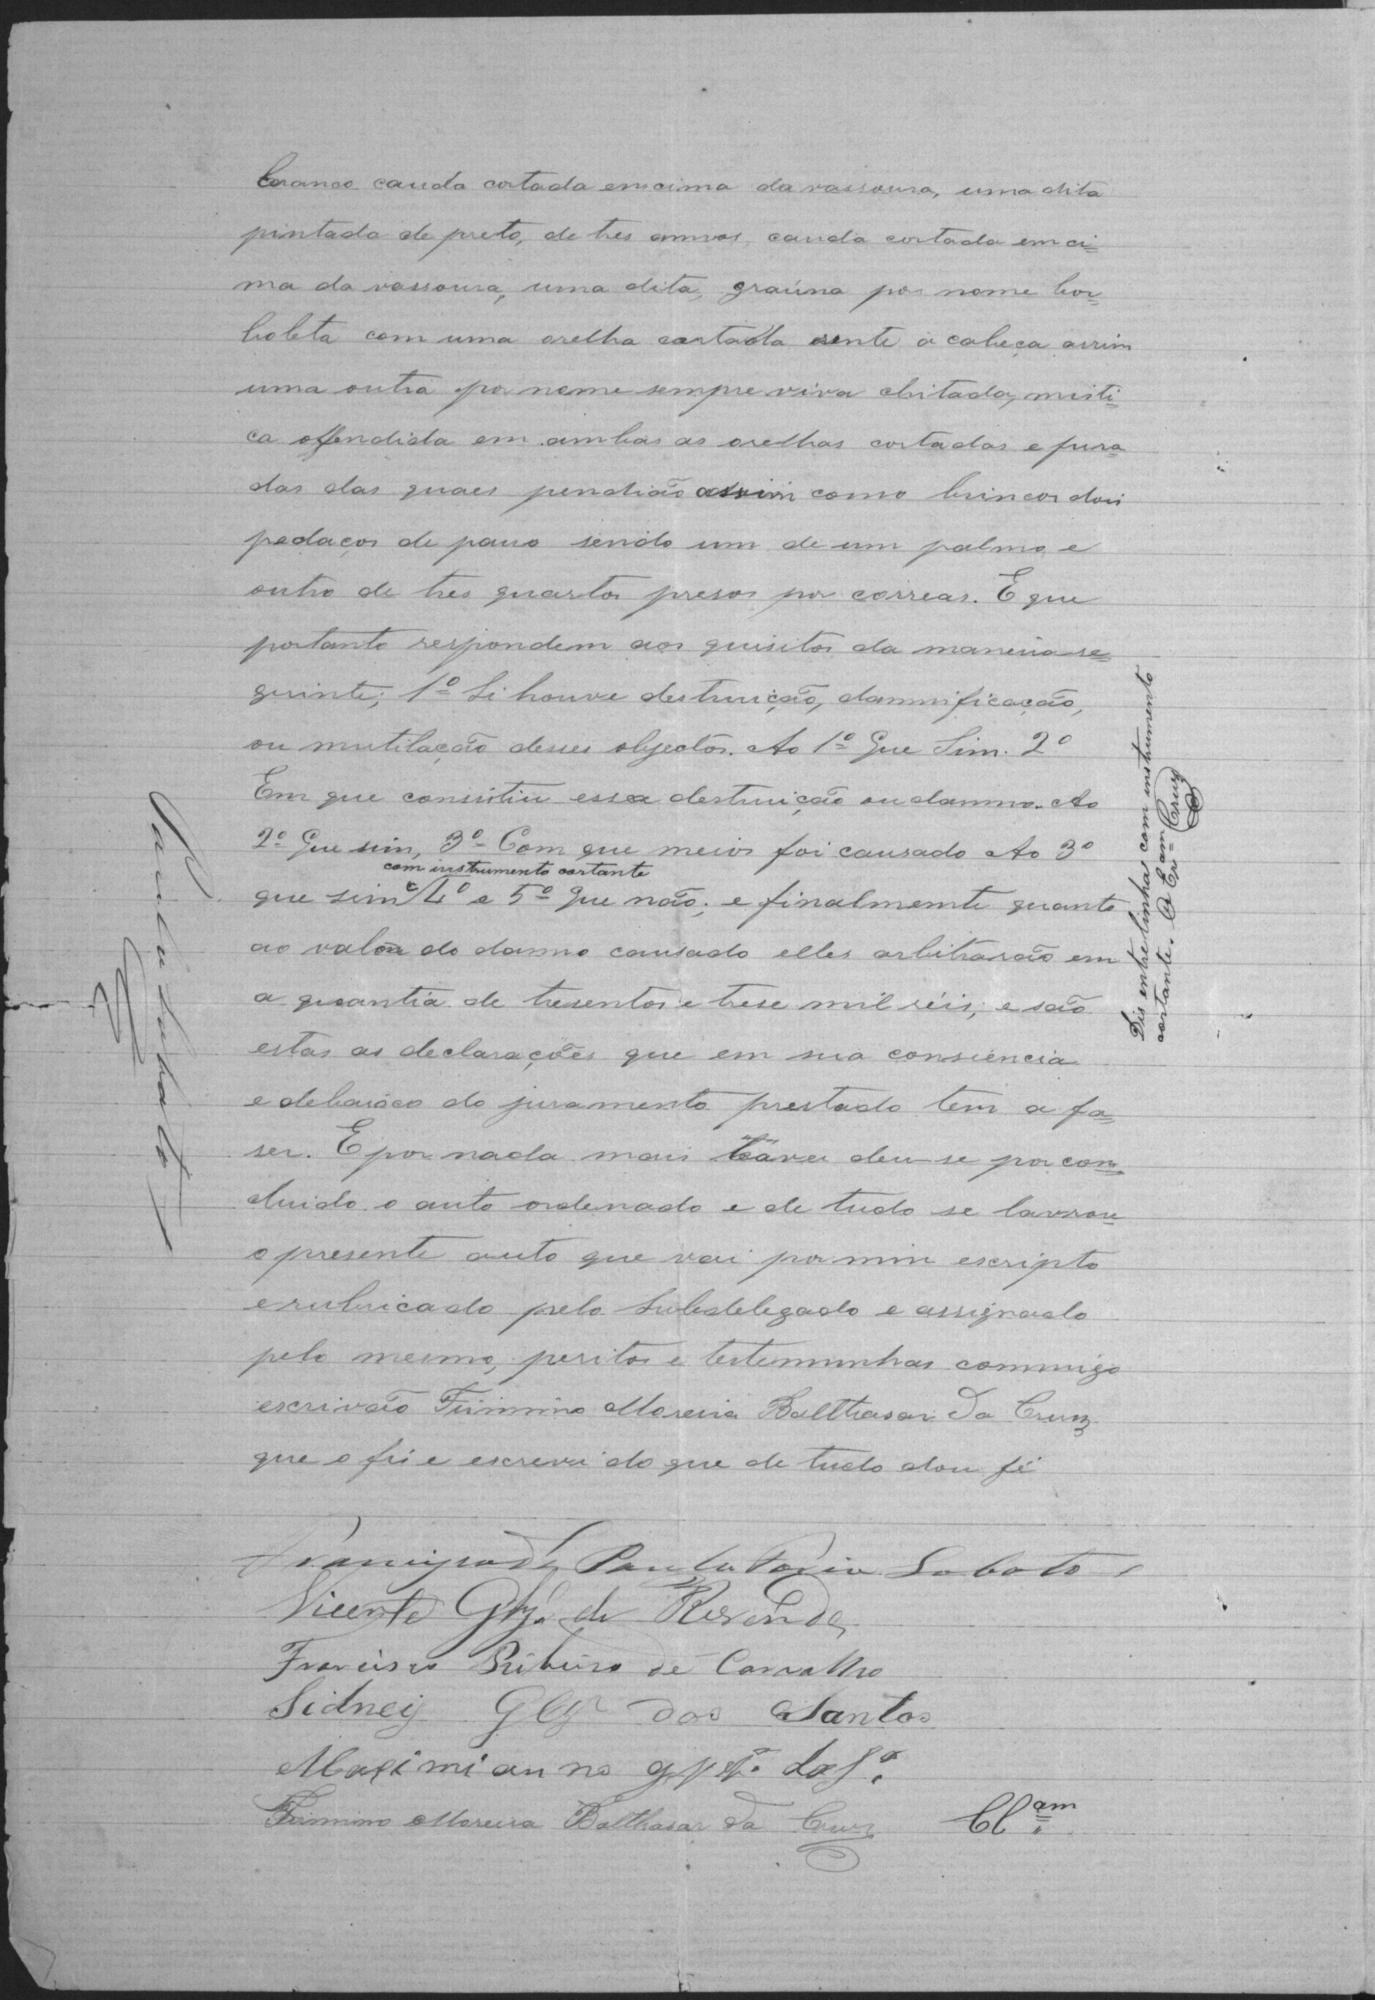 branco cauda cortada emcima da vassoura, uma dita
pintada de preto, de tres annos, cauda cortada em ci=
ma da vassoura, uma dita, graúna por nome bor=
boleta com uma orelha cortada rente a cabeça assim
uma outra por nome sempre viva chitada, misti=
ca offendida em ambas as orelhas cortadas e fura=
das das quaes pendião assim como brincos dois
pedaços de pauo sendo um de um palmo e
outro de tres quartos presos por correas. E que
portanto respondem aos quisitos da maneira se=
guinte; 1º Si houve destruição, damnificação,
ou mutilação desses objectos. Ao 1º Que Sim. 2º
Em que consistiu essa destruição ou damno. Ao
2º Que sim, 3º Com que meios foi causado Ao 3º
com instrumento cortante
que sim 4º e 5º Que não; e finalmente quanto
ao valor do damno causado elles arbitrarão em
a quantia de tresentos e trese mil réis, e são
estas as declarações que em sua consiencia
e debaixo do juramento prestado tem a fa=
ser. E por nada mais haver deu-se por con=
cluido o auto ordenado e de tudo se lavrou
o presente auto que vai por mim escripto
e rubricado pelo Subdelegado e assignado
pelo mesmo, peritos e testemunhas commigo
escrivão Firmino Moreira Balthasar da Cruz
que o fis e escrevi do que de tudo dou fé
Francisco de Paula Lobato
Vicente Glz. de Resende
Francisco Ribeiro de Carvalho
Sidney Glz dos Santos
Maximianno da Sª.
Firmino Moreira Balthasar da Cruz Clam
Paula Lobato
Dis entre linhas com instrumento
cortante. O Eram Cruz